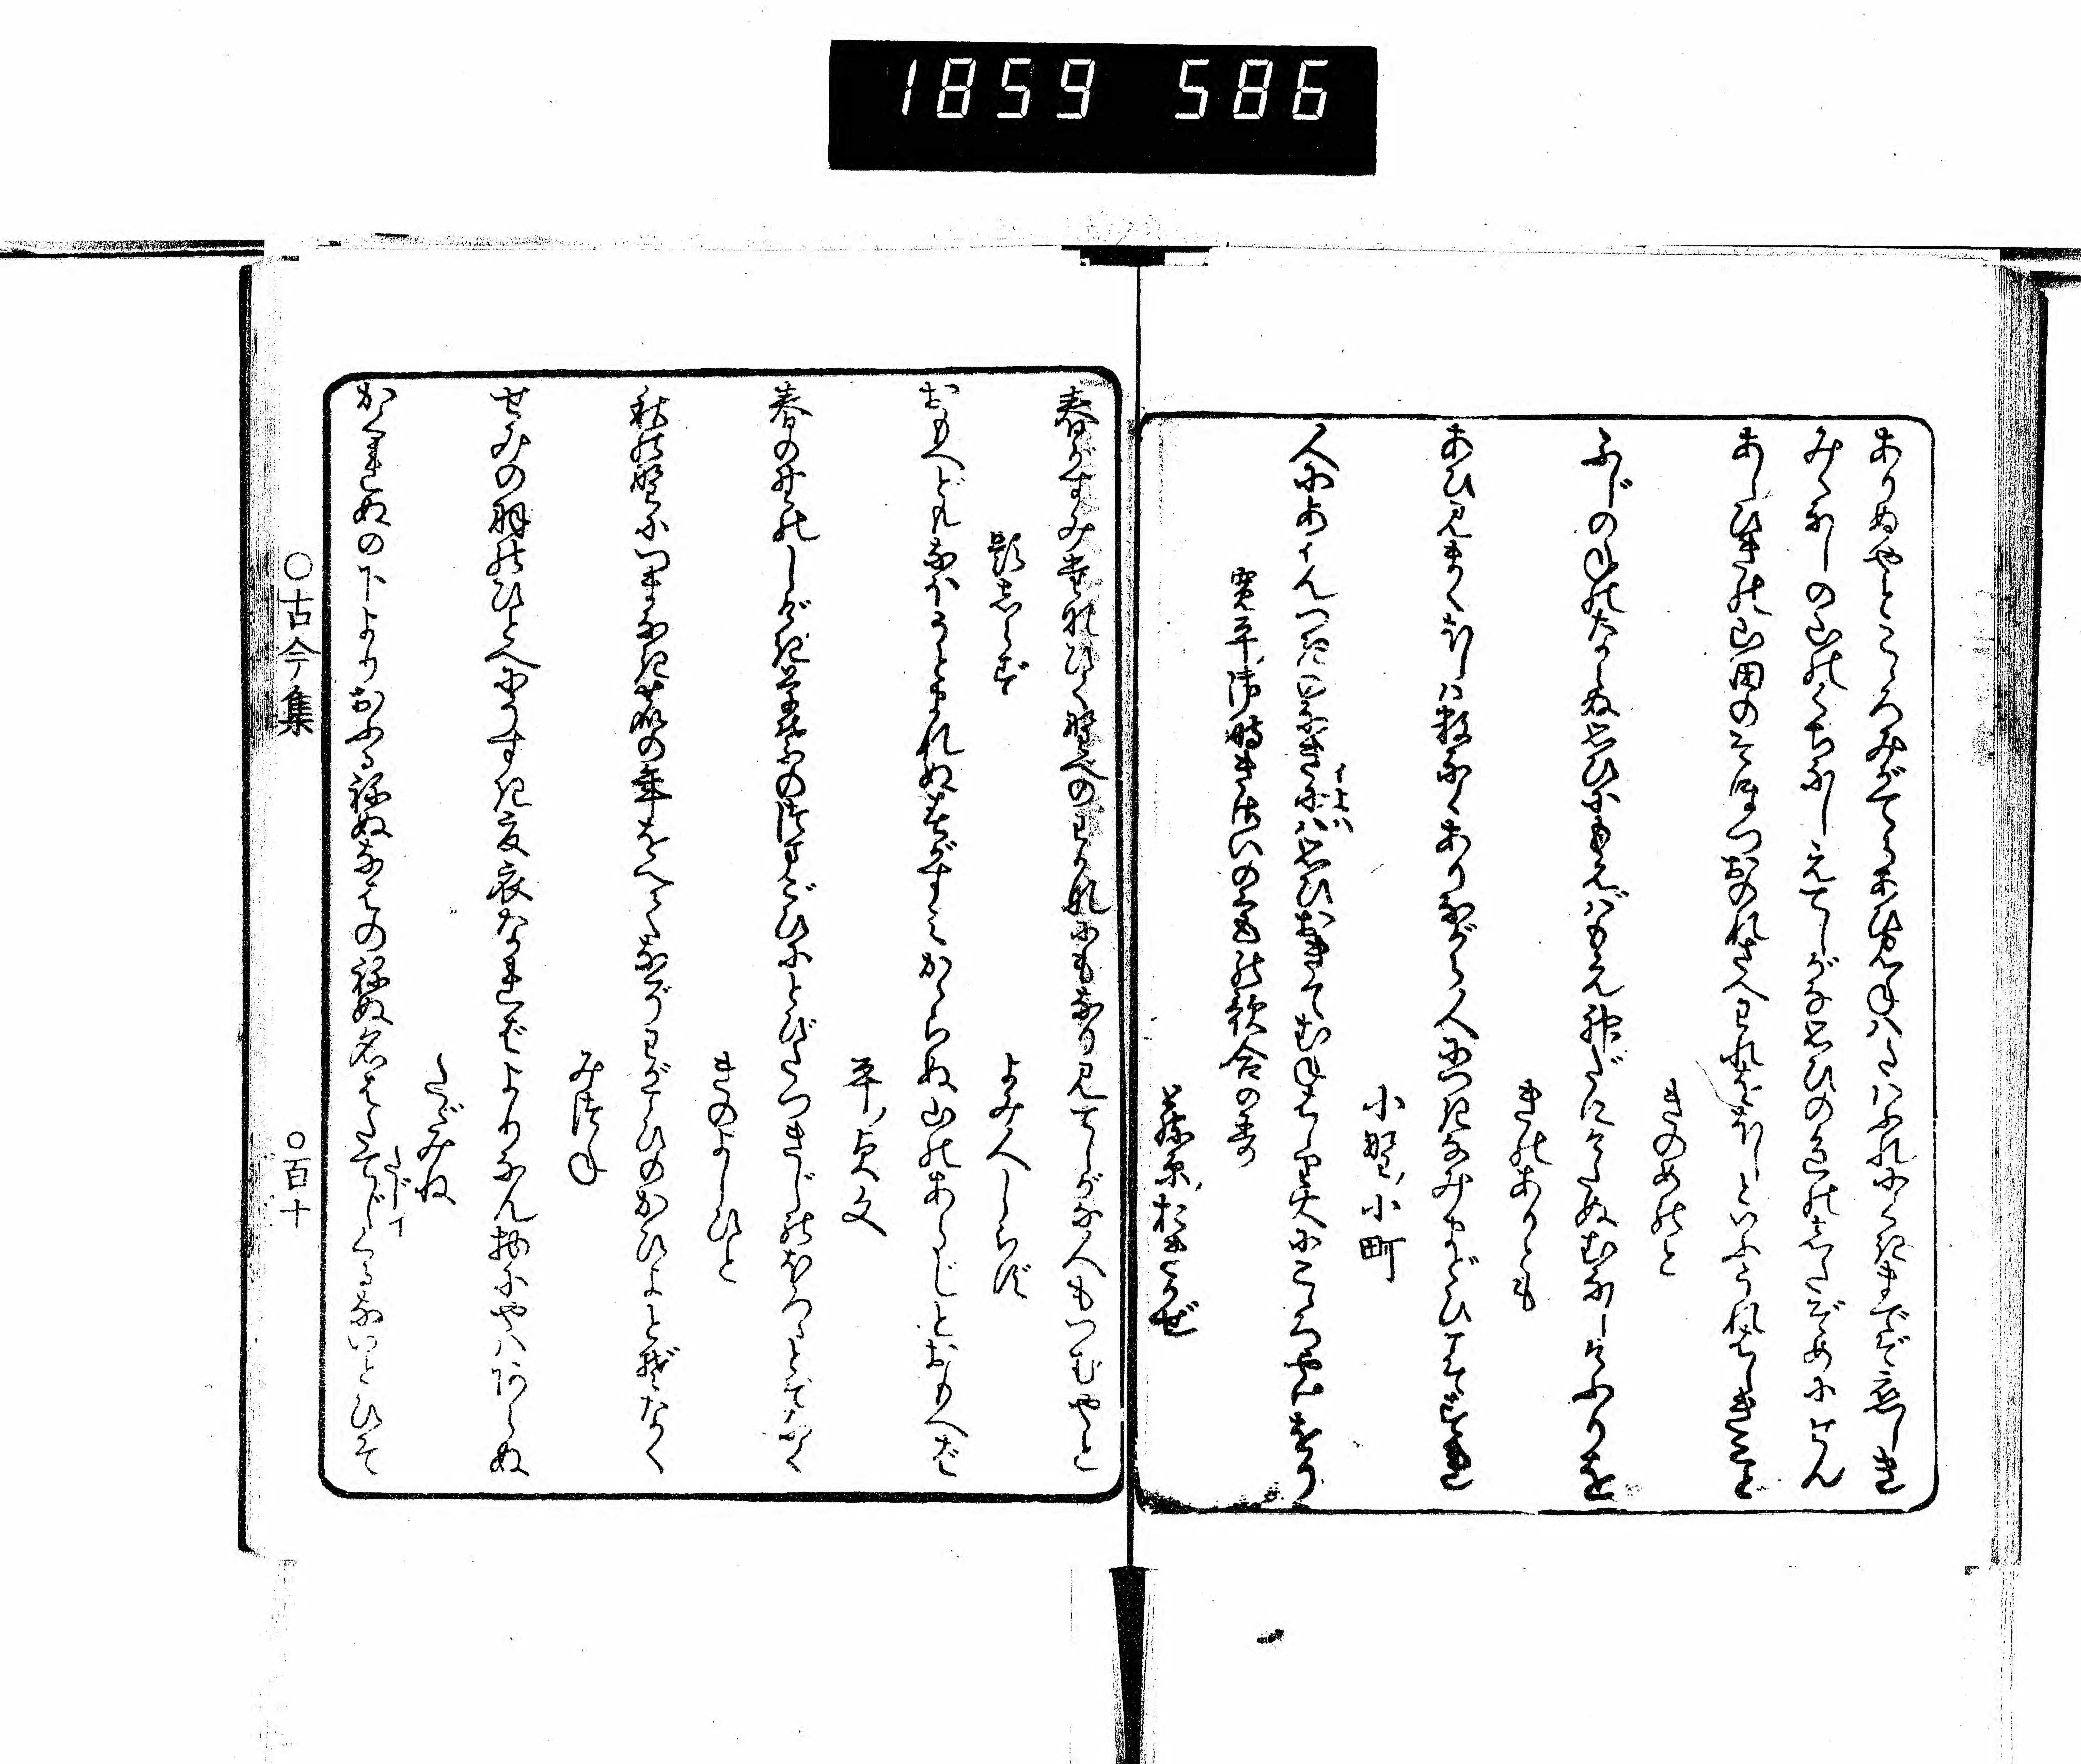 1859 586
ありぬやとこゝろみがてらあひ見ねハたハふれにくきまでぞ恋しき
みゝなしの山のくちなしえてしがな思ひの色の志たぞめにせん
あしひきの山田のそほつおのれさへわれをほしといふうれはしきこと
きのめのと
ふじのねのならぬ思ひにもえバもえ神だにけたぬむなしけふりを
きのありとも
あひ見まくほしハ数なくありながら人につきなみまどひこそすれ
小野ノ小町
人にあはんつきのなきにハ思ひおきてむねはしり火にこゝろやけをり
寛平ノ御時きさいの宮の歌合のうた
藤原ノおきかぜ
春がすみたなびく野べのわかなにもなり見てしがな人もつむやと
題しらず
よみ人しらず
おもへどもなほうとまれぬ春がすみかゝらぬ山のあらじとおもへば
平ノ貞文
春の野のしげき草ばの妻ごひにとびたつきじのほろゝとぞなく
きのよしひと
秋の野につまなき鹿の年をへてなぞわがこひのかひよとぞなく
みつね
せみの羽のひとへにうすき夏衣なればよりなん物にやハあらぬ
たゞみね
かくれぬの下よりおふるねぬなはのねぬ名はたてじくるないとひそ
○古今集
○百十